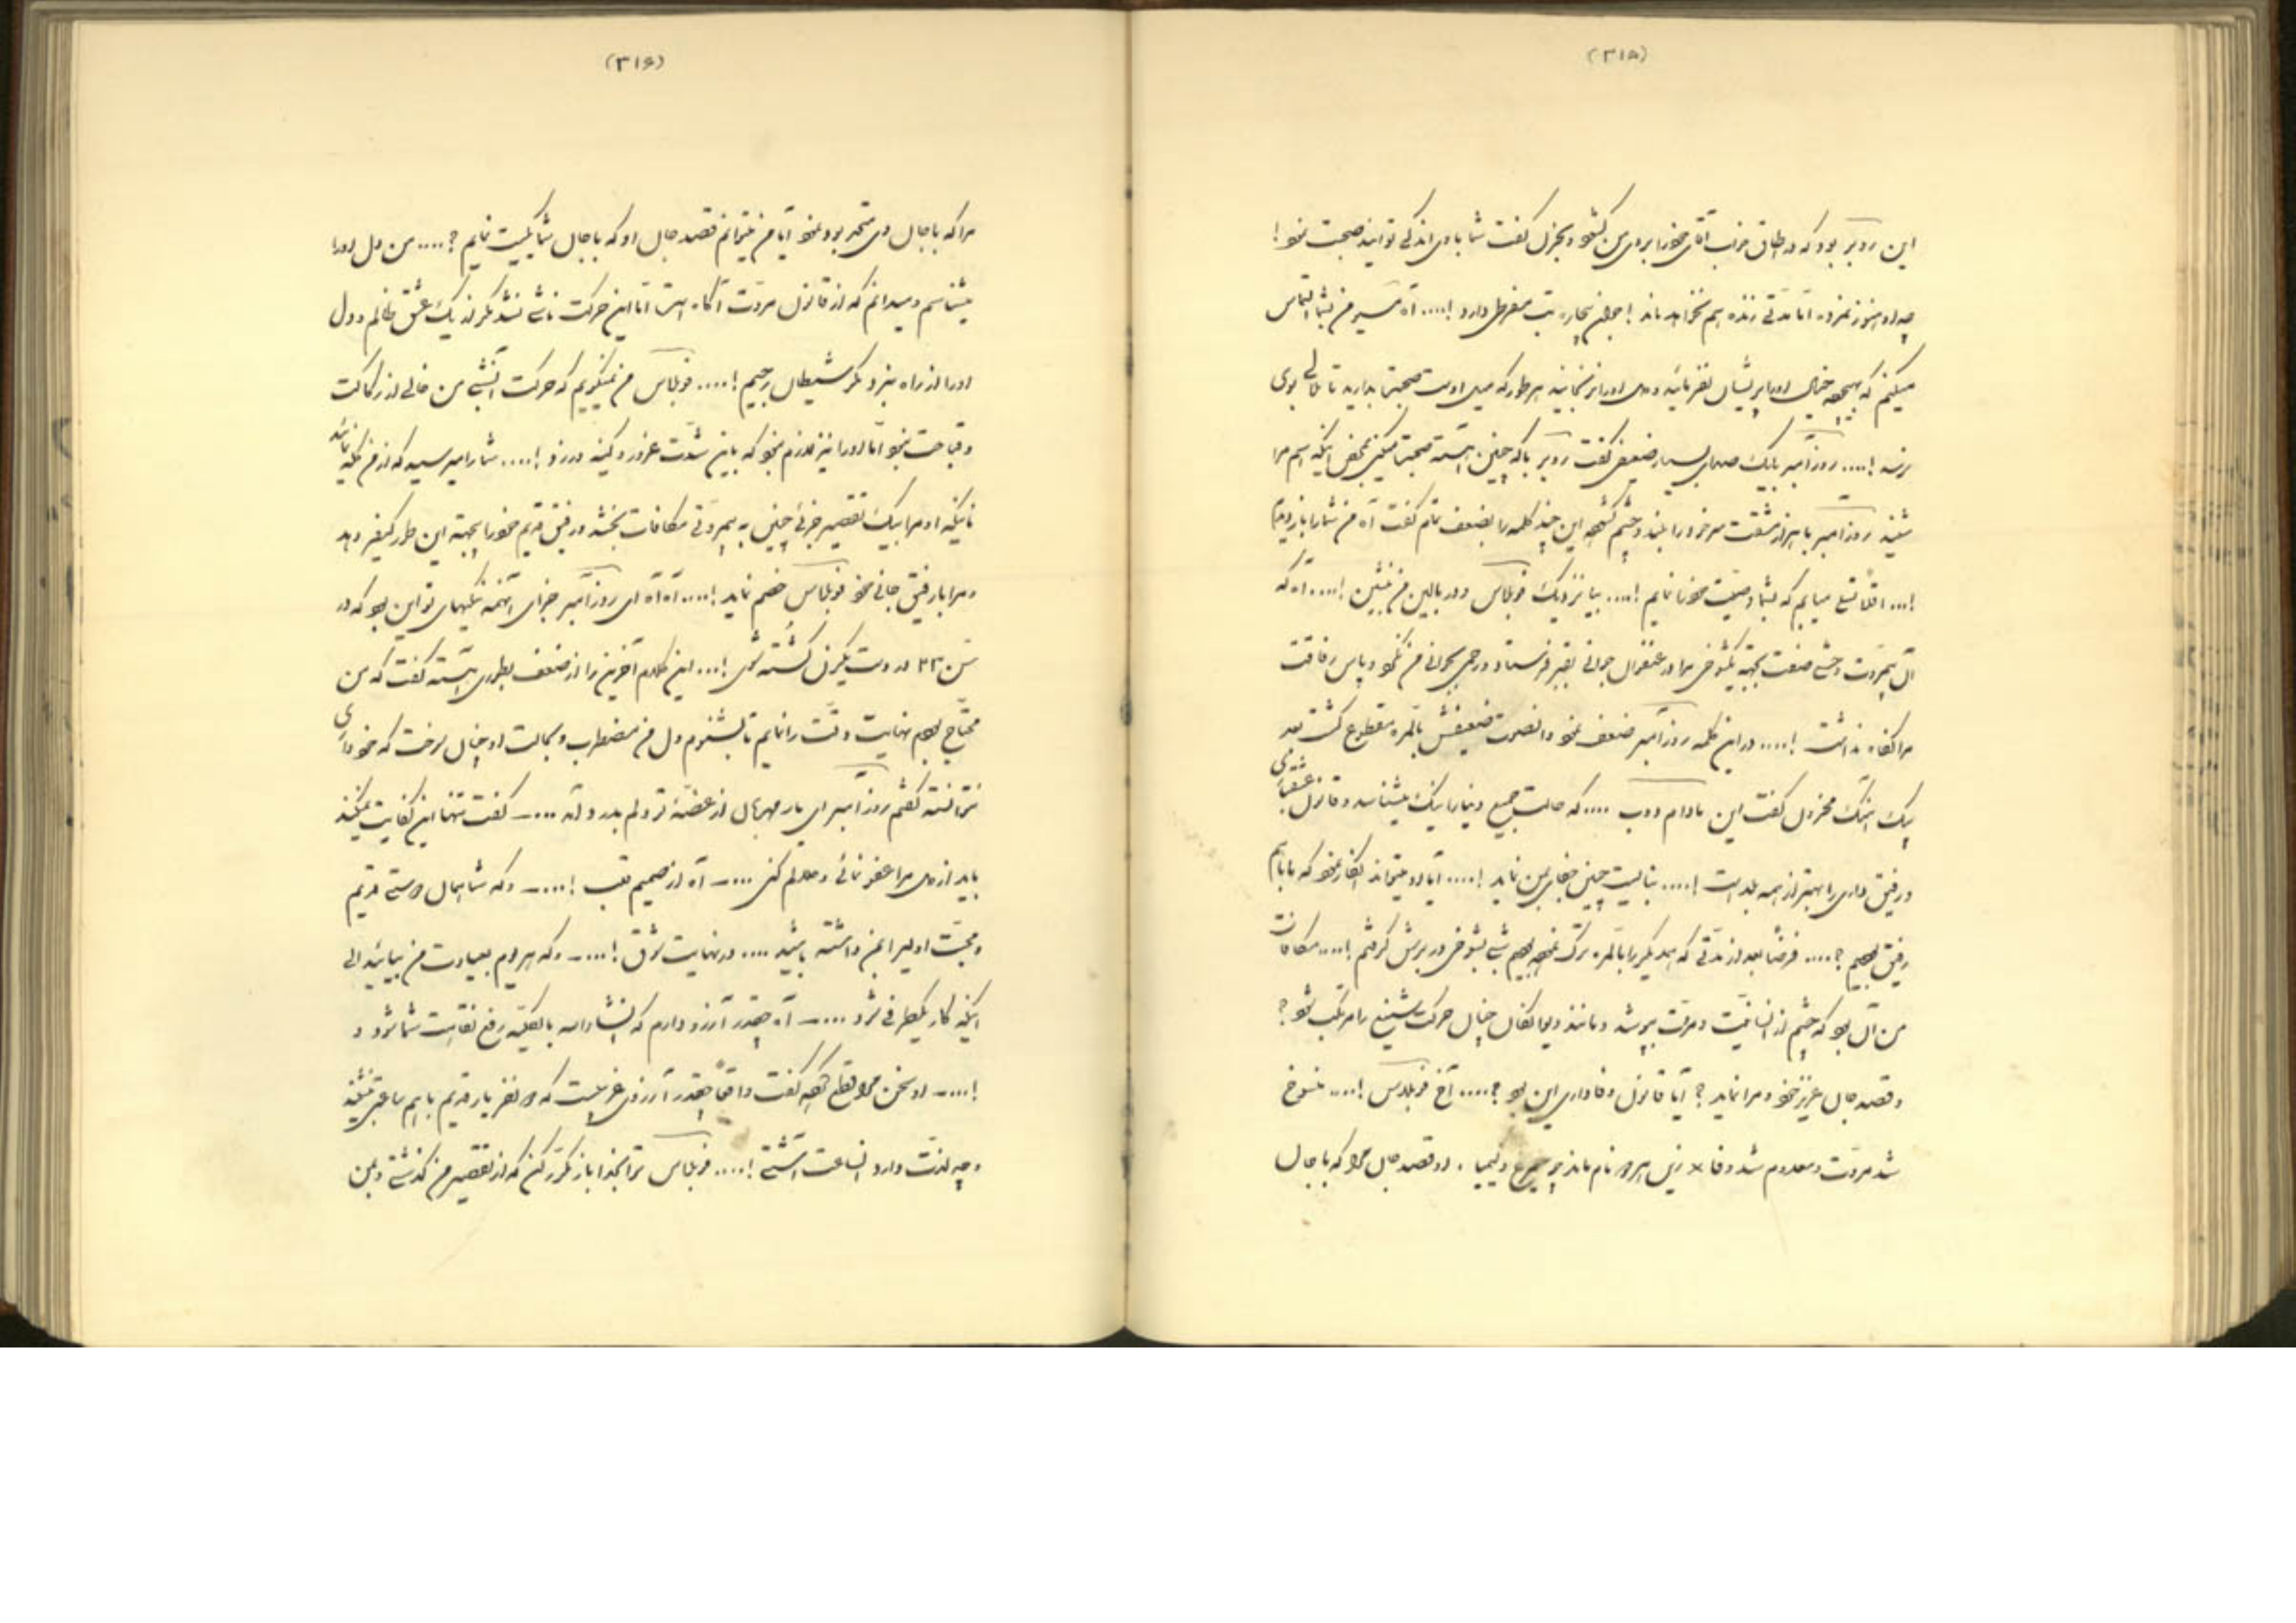 (۳۱۵)
این روبر بود که در اطاق خواب آقای خود را برای من کشود و بحزن گفت شما با وی اندکی توانید صحبت نمود !
چه او هنوز نمرده اما مدتی زنده هم نخواهد ماند ! جوان بیچاره تب مفرطی دارد !.... آه مسیو من بشما التماس
میکنم که بهیچوجه خیال او را پریشان نفرمائید و دل او را نرنجانید هر طور که میل اوست صحبت بدارید تا
نرسد !.... روزامبر بایک صدای بسیار ضعیفی گفت روبر با که چنین آهسته صحبت میکنی بمحض اینکه اسم مرا
شنید روزامبر با هزار مشقت سر خود را بلند و چشم کشوده این چند کلمه را بضعف تمام گفت آه من شما را باز دیدم
!... اقلاً میتوانم که بشما وصیت خود نمایم !.... بیا نزدیک فوبلاس و در بالین من بنشین !.... آه که
آن بیمروت وحشی صفت بجهة یکشوخی مرا در عنفوان جوانی بقبر فرستاد و رحمی بجوانی من نکرد و پاس رفاقت
مرا نگاه نداشت !.... در این کلمه روزامبر ضعف نمود و انصوت ضعیفش بالمره مقطوع گشت بعد
یک اهنگ محزون گفت این مادام دوب .... که حالت جمیع دنیا را نیک میشناسد و قانون عشقبازی
و رفیق داری را بهتر از همه بلد است !.... بنالیست چنین جفا بمن نماید !.... آیا او میتواند انکار نمود که ما با هم
رفیق بودیم ؟.... فرضاً بعد از مدتی که همدیگر را بالمره ترک نموده بودیم شبی بشوخی در برش گرفتم !.... مکافات
من آن بود که چشم از انسانیت و مروت بپوشد و مانند دیوانگان چنان حرکت شنیع را مرتکب شود ؟
و قصد جان عزیز خود و مرا نماید ؟ آیا قانون وفاداری این بود ؟.... آخ فوبلاس !.... منسوخ
شد مروت و معدوم شد وفا × زین هر دو نام ماند چو سیمرغ و کیمیا . او قصد جان مرا که با جان
(۳۱۶)
مرا که با جان وی متحد بود نمود آیا من میتوانم قصد جان او که با جان شما یکیست نمایم ؟.... من دل او را
میشناسم و میدانم که از قانون مروت آگاه است اما این حرکت ناشی نشد مگر از یک عشق ظالم و دل
او را از راه نبرد مگر شیطان رجیم !.... فوبلاس من نمیگویم که حرکت آنشبی من خالی از رکاکت
و قباحت بود اما او را نیز لازم نبود که باین شدت غرور و کینه ورزد !.... شما را میرسید که از من گله نمائید
نه اینکه او مرا بیک تقصیر جزئی چنین به بیمروتی مکافات بخشد و رفیق قدیم خود را بجهة این طور کیفر دهد
و مرا با رفیق جانی خود فوبلاس خصم نماید !.... آه آه ای روزامبر جزای آنهمه نیکیهای تو این بود که در
سن ۲۳ از دست یکزن کشته شوی !... این کلام آخرین را از ضعف بطوری آهسته گفت که من
محتاج بودم نهایت دقت را نمایم تا بشنوم دل من مضطرب و بحالت او چنان سوخت که خودداری
نتوانسته گفتم روزامبر ای یار مهربان از غصه تو دلم بدرد آمد ....ـ گفت تنها این کفایت نمیکند
باید از دل مرا عفو نمائی و حلالم کنی ....ـ آه از صمیم قلب !....ـ و که شما همان دوستی قدیم
و محبت اولیه را بمن داشته باشید .... در نهایت شوق !....ـ و که هر روز بعیادت من بیائید الی
اینکه کار یکطرفی شود ....ـ آه چقدر آرزو دارم که انشاءالله بالکلیه رفع نقاهت شما شود و
!....ـ او سخن مرا قطع کرده گفت واقعاً چقدر آرزوی غریبیست که دو نفر یار قدیم با هم ساعتی بنشیند
و چه لذت دارد انساعت آشتی !.... فوبلاس ترا بخدا باز مکرر کن که از تقصیر من گذشتی و بمن